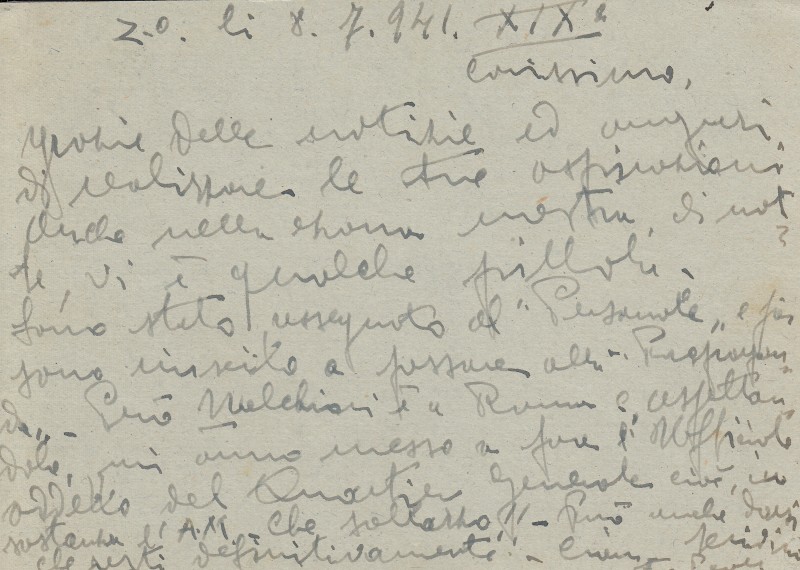 Z.O. li 8.7.941. XIXº
Carissimo,
grazie delle notizie ed auguri
di realizzare le tue aspirazioni
Anche nella zona nostra, di not
te, vi è qualche pillola.
Sono stato assegnato al "Personale" e poi
sono riuscito a passare alla "Propagan
da". Però Melchiori è a Roma e, aspettan
dolo, mi anno messo a fare l'Ufficiale
addetto del Quartier Generale cioè, in
sostanza l'A.M. che sollazzo!! - Può anche darsi
che resti definitivamente! -